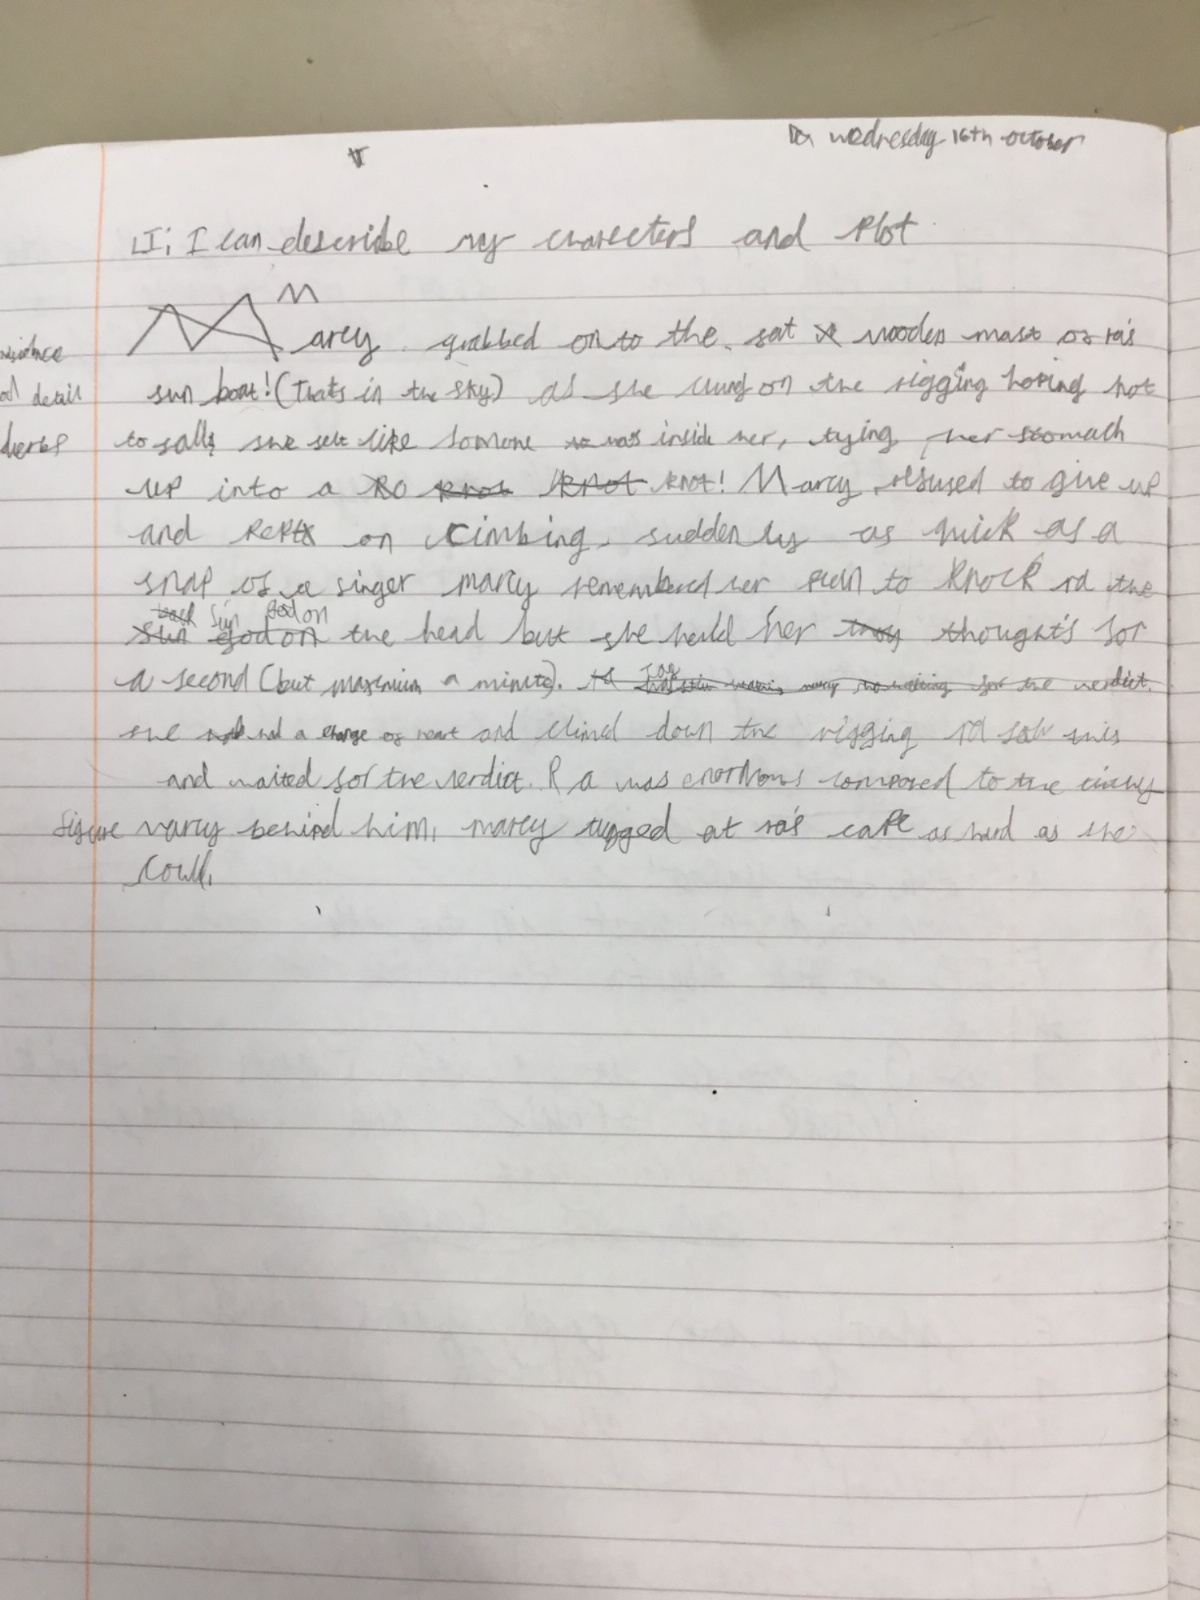 wednesday 16th october
LI: I can describe my charecters and Plot
M
Marcy grabbed on to the fat wooden mast of ra's
sun boat! (Thats in the sky) as she clung on the rigging hoping not
detail
to fall, she felt like Somone inside her, tying her stomach
up into a knot! Marcy refused to give up
and kept on climbing. suddenly as quick as a
snap of a finger marcy remembered her plan to knock ra the
Sun god on
the head but she held her thought's for
a second (but maximum a minute). for the verdict.
she had a change of heart and climed down the rigging
and waited for the verdict. Ra was enormous compared to the
figure marcy behind him, marcy tugged at ra's cape as hard as she
could.